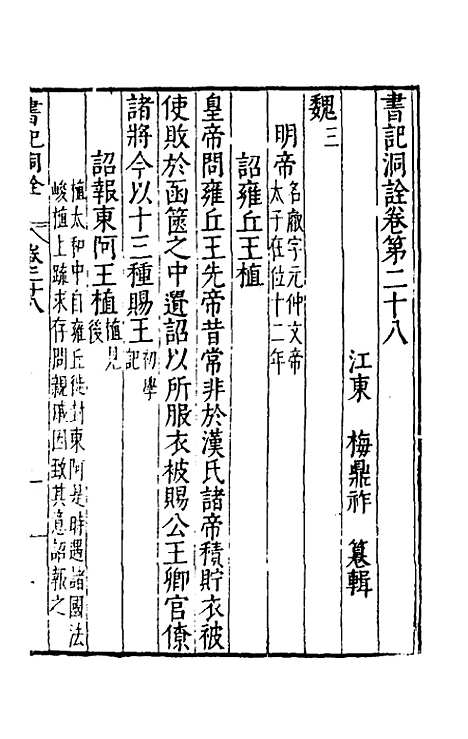 書記洞詮卷第二十八
江東 梅鼎祚 纂輯
魏三
明帝 名叡字元仲文帝
太子在位十二年
詔雍丘王植
皇帝問雍丘王先帝昔常非於漢氏諸帝積貯衣被
使敗於函篋之中遺詔以所服衣被賜公王卿官僚
諸將今以十三種賜王 初學
記
詔報東阿王植 植見
後
植太和中自雍丘徙封東阿是時遇諸國法
峻植上疏求存問親戚因致其意詔報之
書記洞詮 卷二十八 一